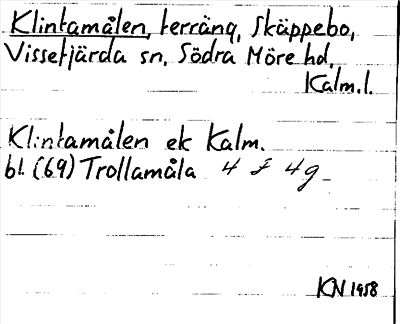 Klintamålen, terräng, Skäppebo,
Vissefjärda sn, Södra Möre hd,
Kalm.l.
Klintamålen ek Kalm.
bl. (69) Trollamåla 4 f 4g
KN 1958